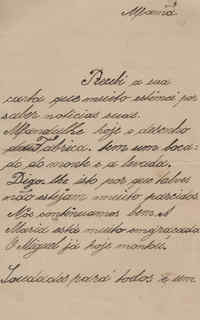 Mamã
Recebi a sua
carta que muito estimei por
saber noticias suas.
Mando-lhe hoje o desenho
da Fabrica. tem um boca-
do do monte e a levada.
Digo-lhe isto por que talvez
não estejam muito parcidos
Nós continuamos bem. A
Maria está muito engraçada
O Miguel já hoje montou.
Saudades para todos e um